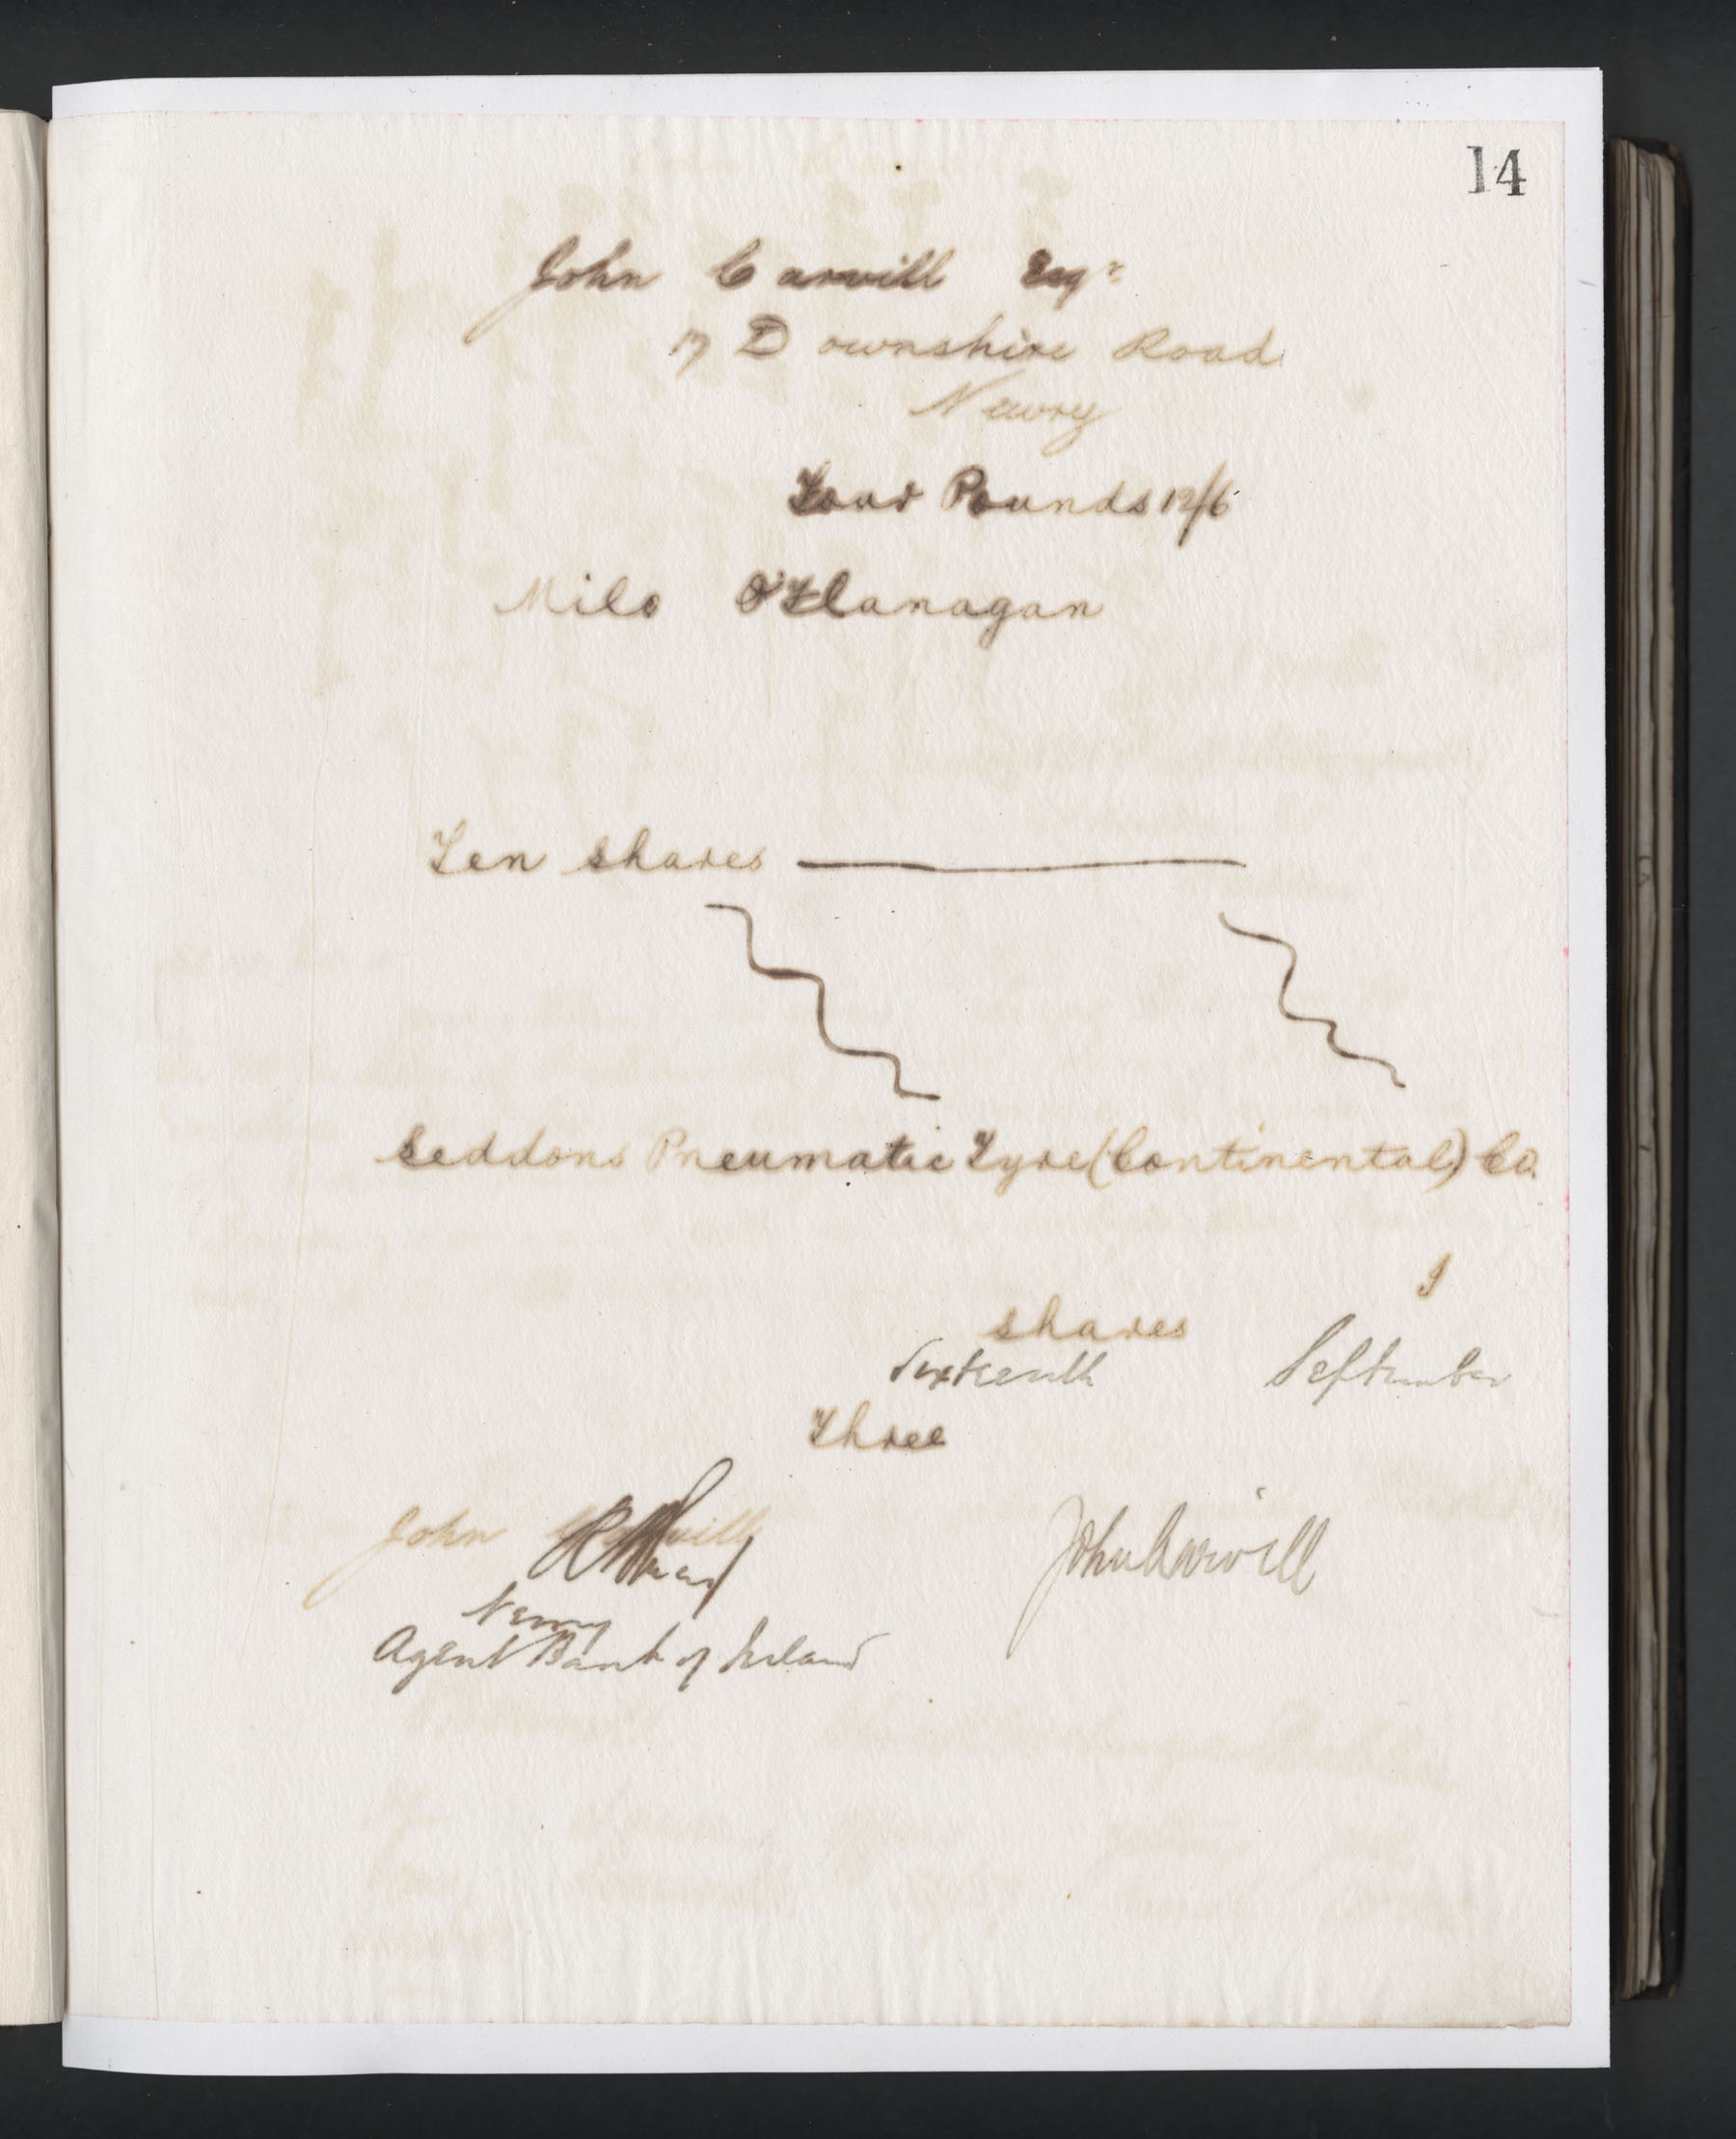 14
John Carvill Esqr
17 Downshire Road
Newry
Four Pounds 12/6
Milo O'Flanagan
Ten shares
Seddons Pneumatic Tyre (Continental) Co.
I
shares
Sixteenth September
Three
John Carvill
John Carvill
Newry
Agent Bank of Ireland